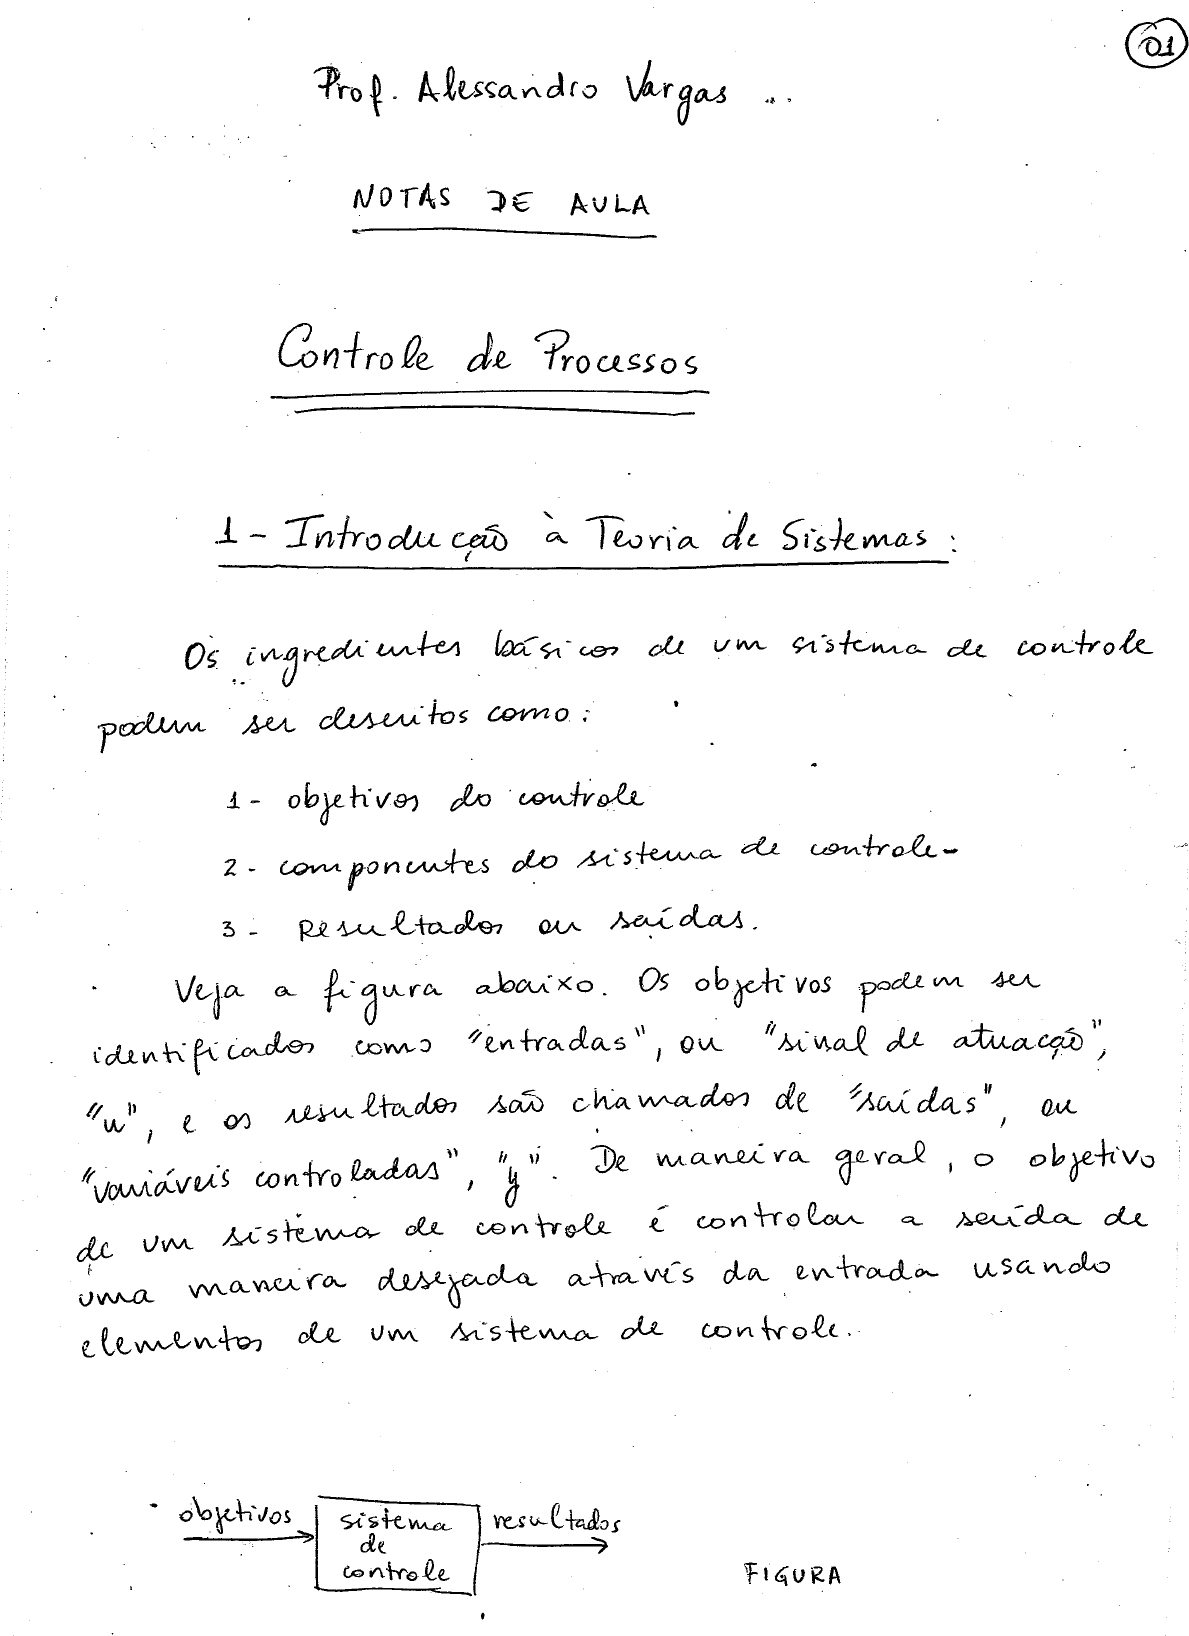 01
Prof. Alessandro Vargas ...
NOTAS DE AULA
Controle de Processos
1 - Introdução à Teoria de Sistemas :
Os ingredientes básicos de um sistema de controle
podem ser descritos como :
1 - objetivos do controle
2 - componentes do sistema de controle -
3 - Resultados ou saídas.
Veja a figura abaixo. Os objetivos podem ser
identificados como "entradas", ou "sinal de atuação",
"u", e os resultados são chamados de "saídas", ou
"variáveis controladas", "y". De maneira geral, o objetivo
de um sistema de controle é controlar a saída de
uma maneira desejada através da entrada usando
elementos de um sistema de controle.
objetivos sistema resultados
de
controle FIGURA